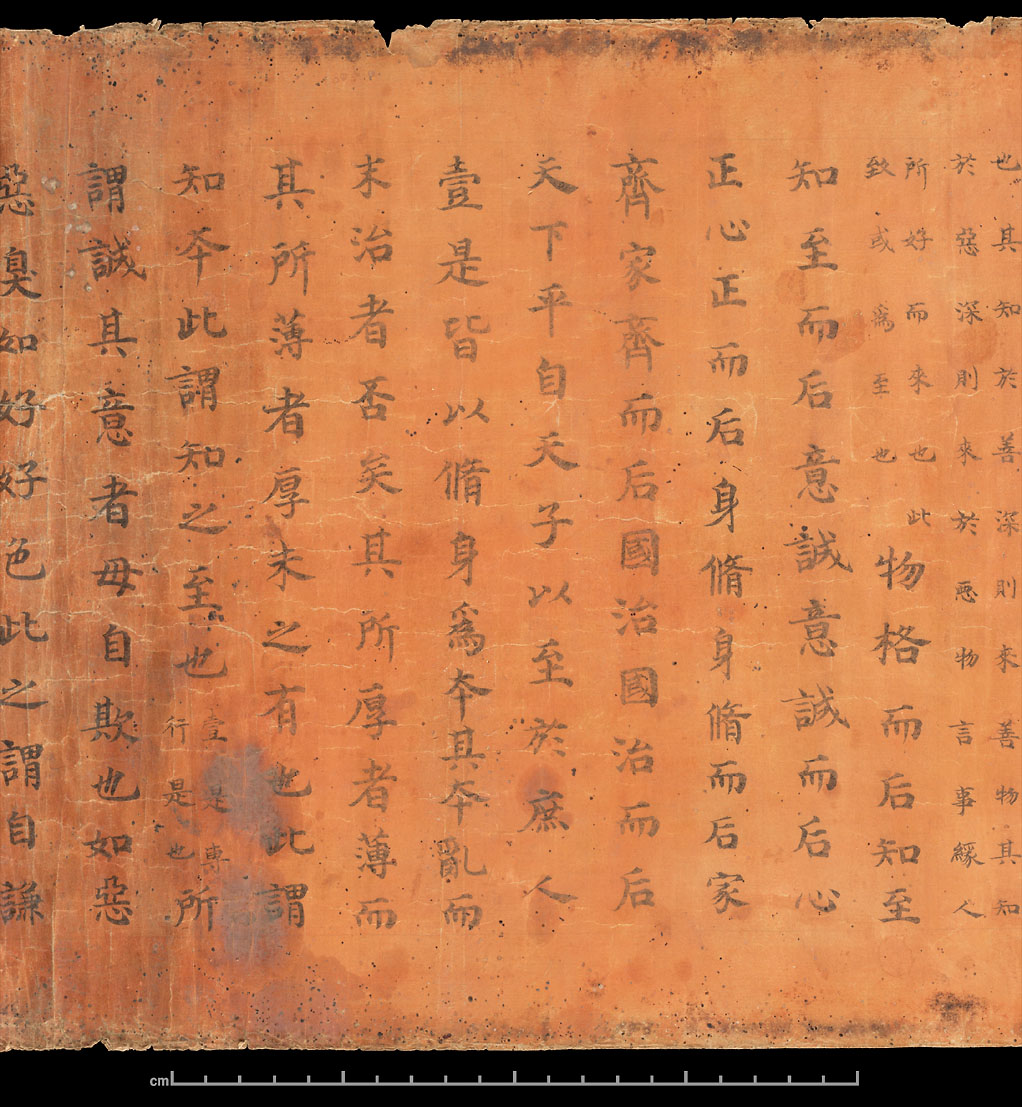 也其知於善深則來善物其知
於惡深則來於悪物言事緣人
所好而來也此
致或爲至也
物格而后知至
知至而后意誠意誠而后心
正心正而后身脩身脩而后家
齊家齊而后國治國治而后
天下平自天子以至於庶人
壹是皆以脩身爲夲其夲亂而
末治者否矣其所厚者薄而
其所薄者厚未之有也此謂
知夲此謂知之至也
壹是專
行是也
所
謂誠其意者毋自欺也如惡
惡臭如好好色此之謂自謙